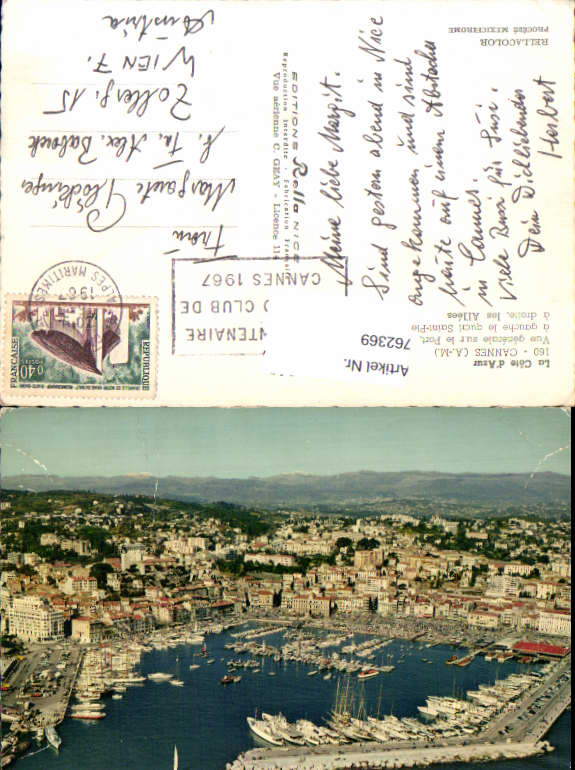 La Côte d'Azur
160 - CANNES (A.-M.)
Vue générale sur le Port,
à gauche le quai Saint-Pie
à droite, les Allées
Meine liebe Margit.
Sind gestern abend in Nice
angekommen und sind
heute auf einem Abstecher
in Cannes.
Viele Bussi für Susi.
Dein Dichliebender
Herbert
RELLACOLOR
PROCÉDÉ MEXICHROME
EDITIONS Rella NICE
Reproduction Interdite - Fabrication Française
Vue aérienne C. GRAY - Licence 114
ENTENAIRE
CLUB DE
CANNES 1967
ALPES MARITIMES
REPUBLIQUE
FRANÇAISE
POSTES
0,40
Frau
Margarete
Fa. Alex.
Zollerg. 15
WIEN 7.
Austria
Artikel Nr.
762369